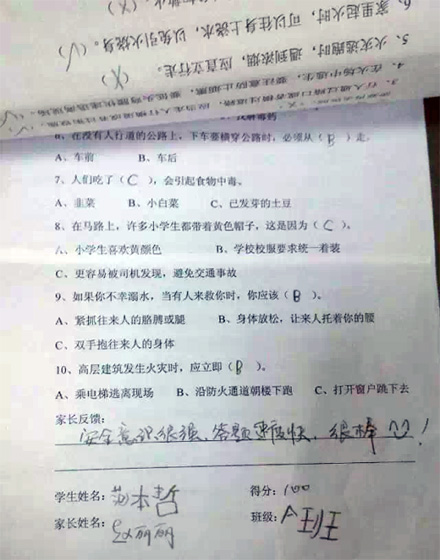 6、家里起火时，可以往身上浇水，以免引火烧身。(√)
5、火灾逃跑时，遇到浓烟，应直立行走。(X)
6、在没有人行道的公路上，下车要横穿公路时，必须从（B）走。
A、车前 B、车后
7、人们吃了（C），会引起食物中毒。
A、韭菜 B、小白菜 C、已发芽的土豆
8、在马路上，许多小学生都带着黄色帽子，这是因为（C）。
A、小学生喜欢黄颜色 B、学校校服要求统一着装
C、更容易被司机发现，避免交通事故
9、如果你不幸溺水，当有人来救你时，你应该（B）。
A、紧抓往来人的胳膊或腿 B、身体放松，让来人托着你的腰
C、双手抱往来人的身体
10、高层建筑发生火灾时，应立即（B）。
A、乘电梯逃离现场 B、沿防火通道朝楼下跑 C、打开窗户跳下去
家长反馈：
安全意识很强、答题速度快，很棒！
学生姓名：范本哲 得分：100
家长姓名：赵丽丽 班级：A班